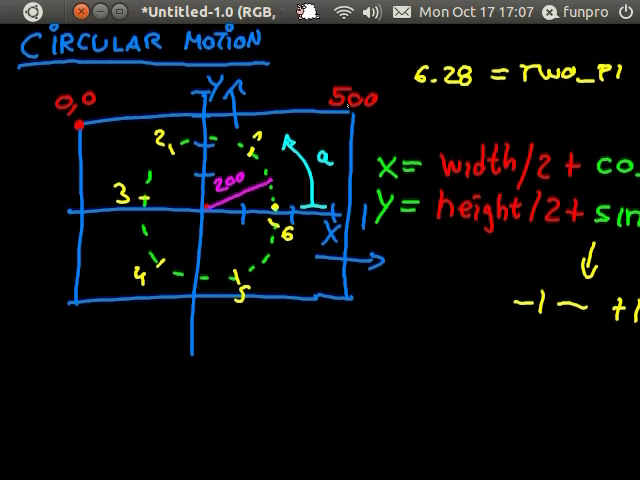 *Untitled-1.0 (RGB, Mon Oct 17 17:07 funpro
CIRCULAR MOTION
6.28 = TWO_PI
0,0
Y
500
2
1
a
200
3
X= width/2 + co
Y= height/2 + sin
X
6
4
5
-1 ~ +1